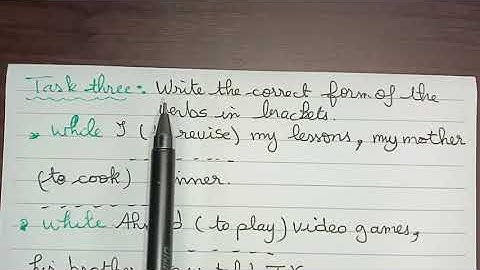 Task three: Write the correct form of the
verbs in brackets.
* while I (to revise) my lessons, my mother
(to cook) dinner.
* while Ahmed (to play) video games,
his brother